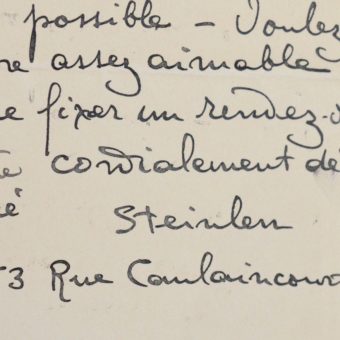 possible – Voulez
re assez aimable
e fixer un rendez-v
cordialement dé
é Steinlen
53 Rue Caulaincou